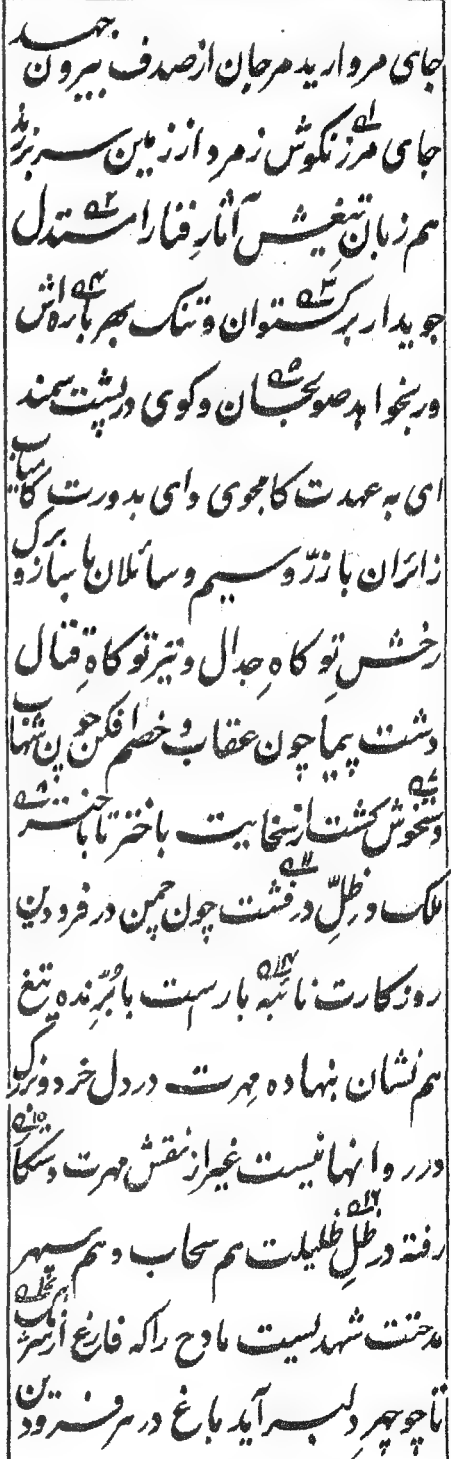 جای مروارید مرجان از صدف بیرون جهد
جای مرزنگوش زمرد از زمین سر برزند
هم زبان تیغش آثار فنا را مستدل
جویدار برکستوان و تنک بهر باره‌اش
ور بخواهد صولجان و کوی در پشت سمند
ای به عهدت کامجوی و ای بدورت کامیاب
زائران با زرّ و سیم و سائلان با ساز و برک
رخش تو کاه جدال و تیر تو کاه قتال
دشت پیما چون عقاب و خصم افکن چون شهاب
دستخوش کشت از سخایت باختر تا باختر
ملک در ظلّ درفشت چون چمن در فرودین
روز کارت نائبه بارست با برّنده تیغ
هم نشان بنهاده مهرت در دل خرد و بزرک
در روانها نیست غیر از نقش مهرت
رفته در ظلّ ظلیلت هم سحاب و هم سپهر
مدحتت شهدیست مادح را که فارغ از
تا چو چهر دلبر آید باغ در هر فرودین